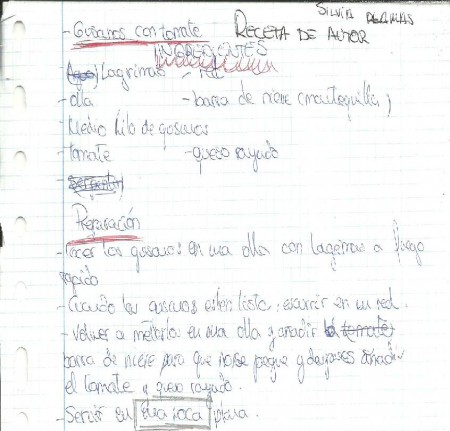 SILVIA
- Gusanos con tomate RECETA DE AUTOR
INGREDIENTES
- Lagrimas - red
- olla - barra de nieve (mantequilla)
- Medio kilo de gusanos
- tomate - queso rayado
- Serpentin
Preparación
- Cocer los gusanos en una olla con lagrimas a fuego
rapido
- Cuando los gusanos esten listos, escurrir en un red.
- Volver a meterlos en una olla y añadir la tomate
barra de nieve para que no se pegue y despues añadir
el tomate y queso rayado.
- Servir en una roca plana.